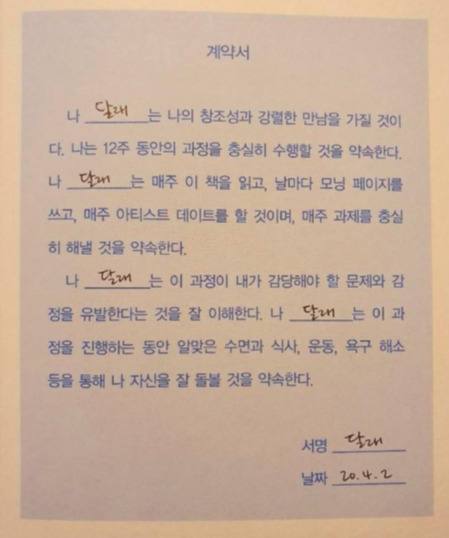 계약서
나 달래 는 나의 창조성과 강렬한 만남을 가질 것이
다. 나는 12주 동안의 과정을 충실히 수행할 것을 약속한다.
나 달래 는 매주 이 책을 읽고, 날마다 모닝 페이지를
쓰고, 매주 아티스트 데이트를 할 것이며, 매주 과제를 충실
히 해낼 것을 약속한다.
나 달래 는 이 과정이 내가 감당해야 할 문제와 감
정을 유발한다는 것을 잘 이해한다. 나 달래 는 이 과
정을 진행하는 동안 알맞은 수면과 식사, 운동, 욕구 해소
등을 통해 나 자신을 잘 돌볼 것을 약속한다.
서명 달래
날짜 20.4.2